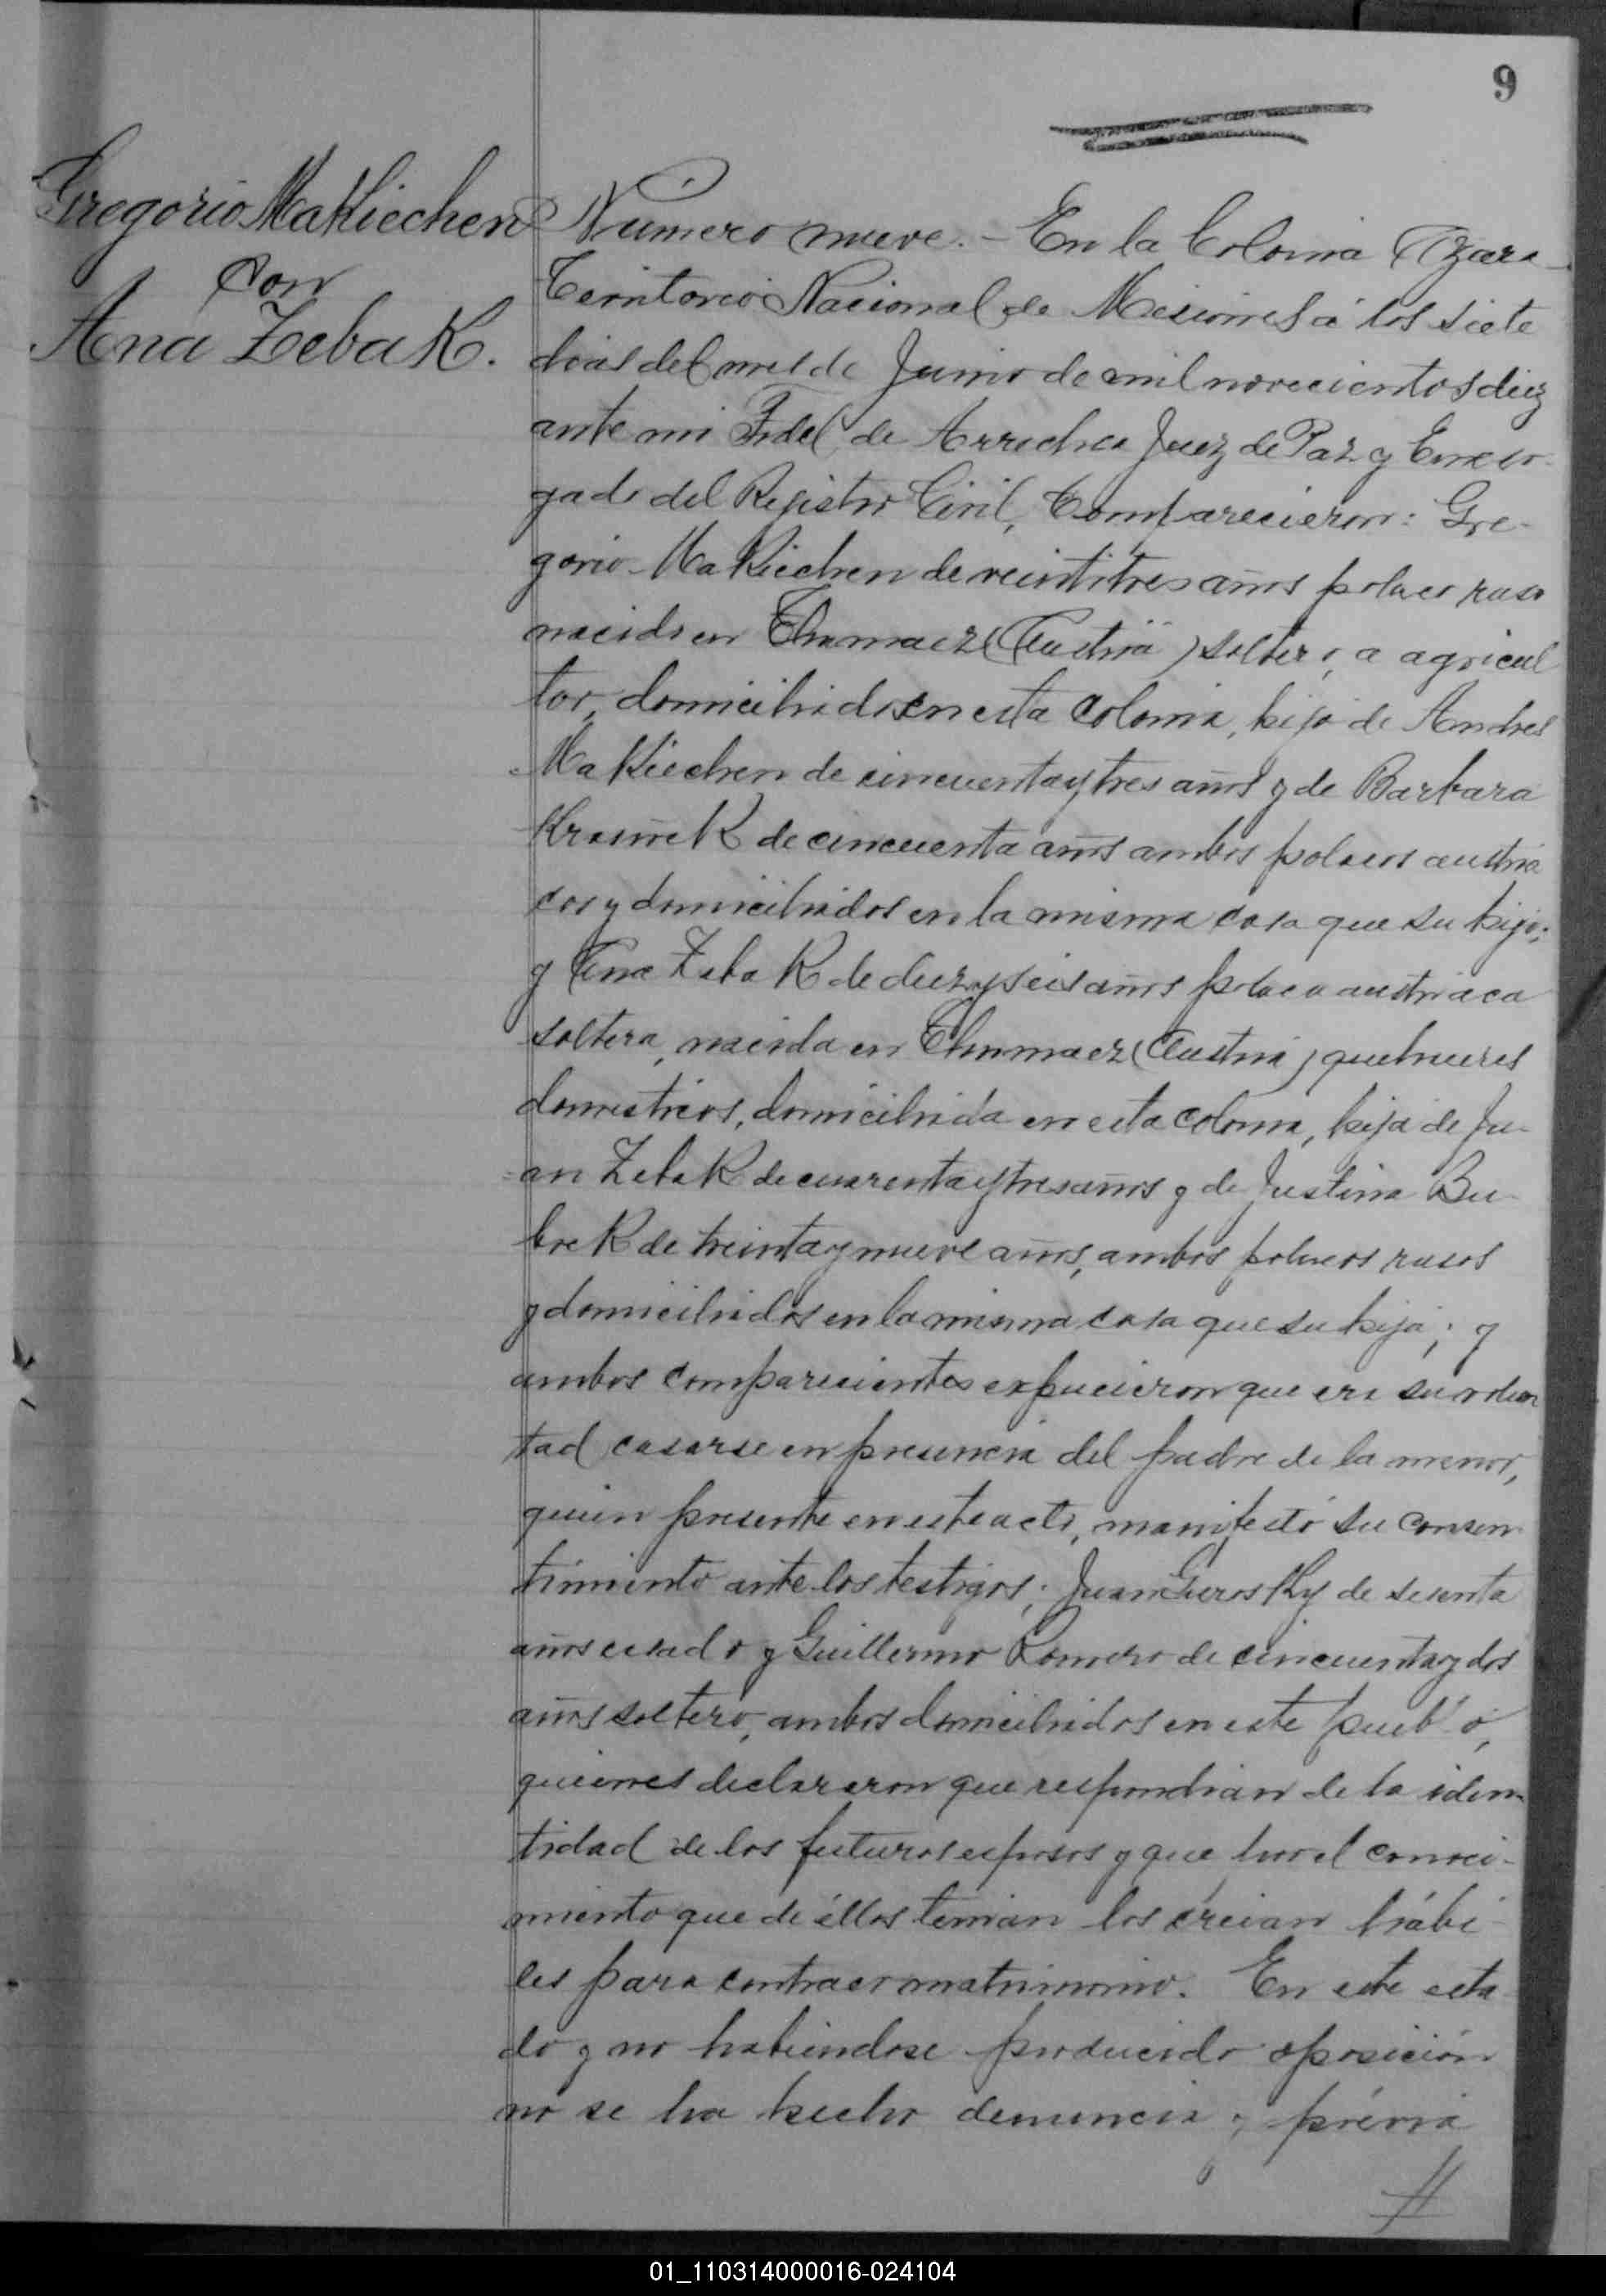 9
Gregorio MaKiechen
con
Ana ZebaK.
Número nueve. - En la Colonia Azara
Territorio Nacional de Misiones á los siete
dias del mes de Junio de mil novecientos diez
ante mi Fidel de Arrechea Juez de Paz y Encar-
gado del Rejistro Civil, Comparecieron: Gre-
gorio MaKiechen de veintitres años polaco ruso
nacido en Thumacz (Austria) soltero, a agricul
tor, domiciliado en esta Colonia, hijo de Andres
MaKiechen de cincuenta y tres años y de Barbara
de cincuenta años ambos polacos austria
cos y domiciliados en la misma casa que su hijo;
y Ana ZebaK de diez y seis años polaca austriaca
soltera, nacida en Thumacz (Austria) quehaceres
domesticos, domiciliada en esta Colonia, hija de Ju-
=an ZebaK de cuarenta y tres años y de Justina Bu-
breK de treinta y nueve años, ambos polacos rusos
y domiciliados en la misma casa que su hija; y
ambos comparecientes expucieron que era su volun
tad casarse en presencia del padre de la menor,
quien presente en este acto, manifestó su consen
timiento ante los testigos; Juan GurosKy de sesenta
años casado y Guillermo Romero de cincuenta y dos
años soltero, ambos domiciliados en este pueblo,
quienes declararon que respondian de la iden
tidad de los futuros esposos y que por el conoci-
miento que de éllos tenian los creian hábi-
les para contraer matrimonio. En este esta
do y no habiendose producido oposición
no se ha hecho denuncia y prévia
//
01_110314000016-024104